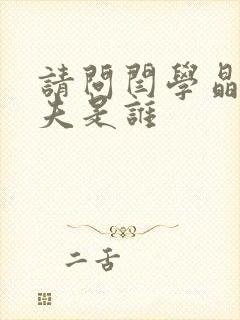 請問閆學晶
夫是誰
二舌